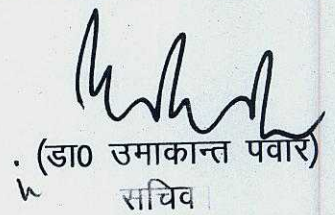 (डा0 उमाकान्त पंवार)
सचिव